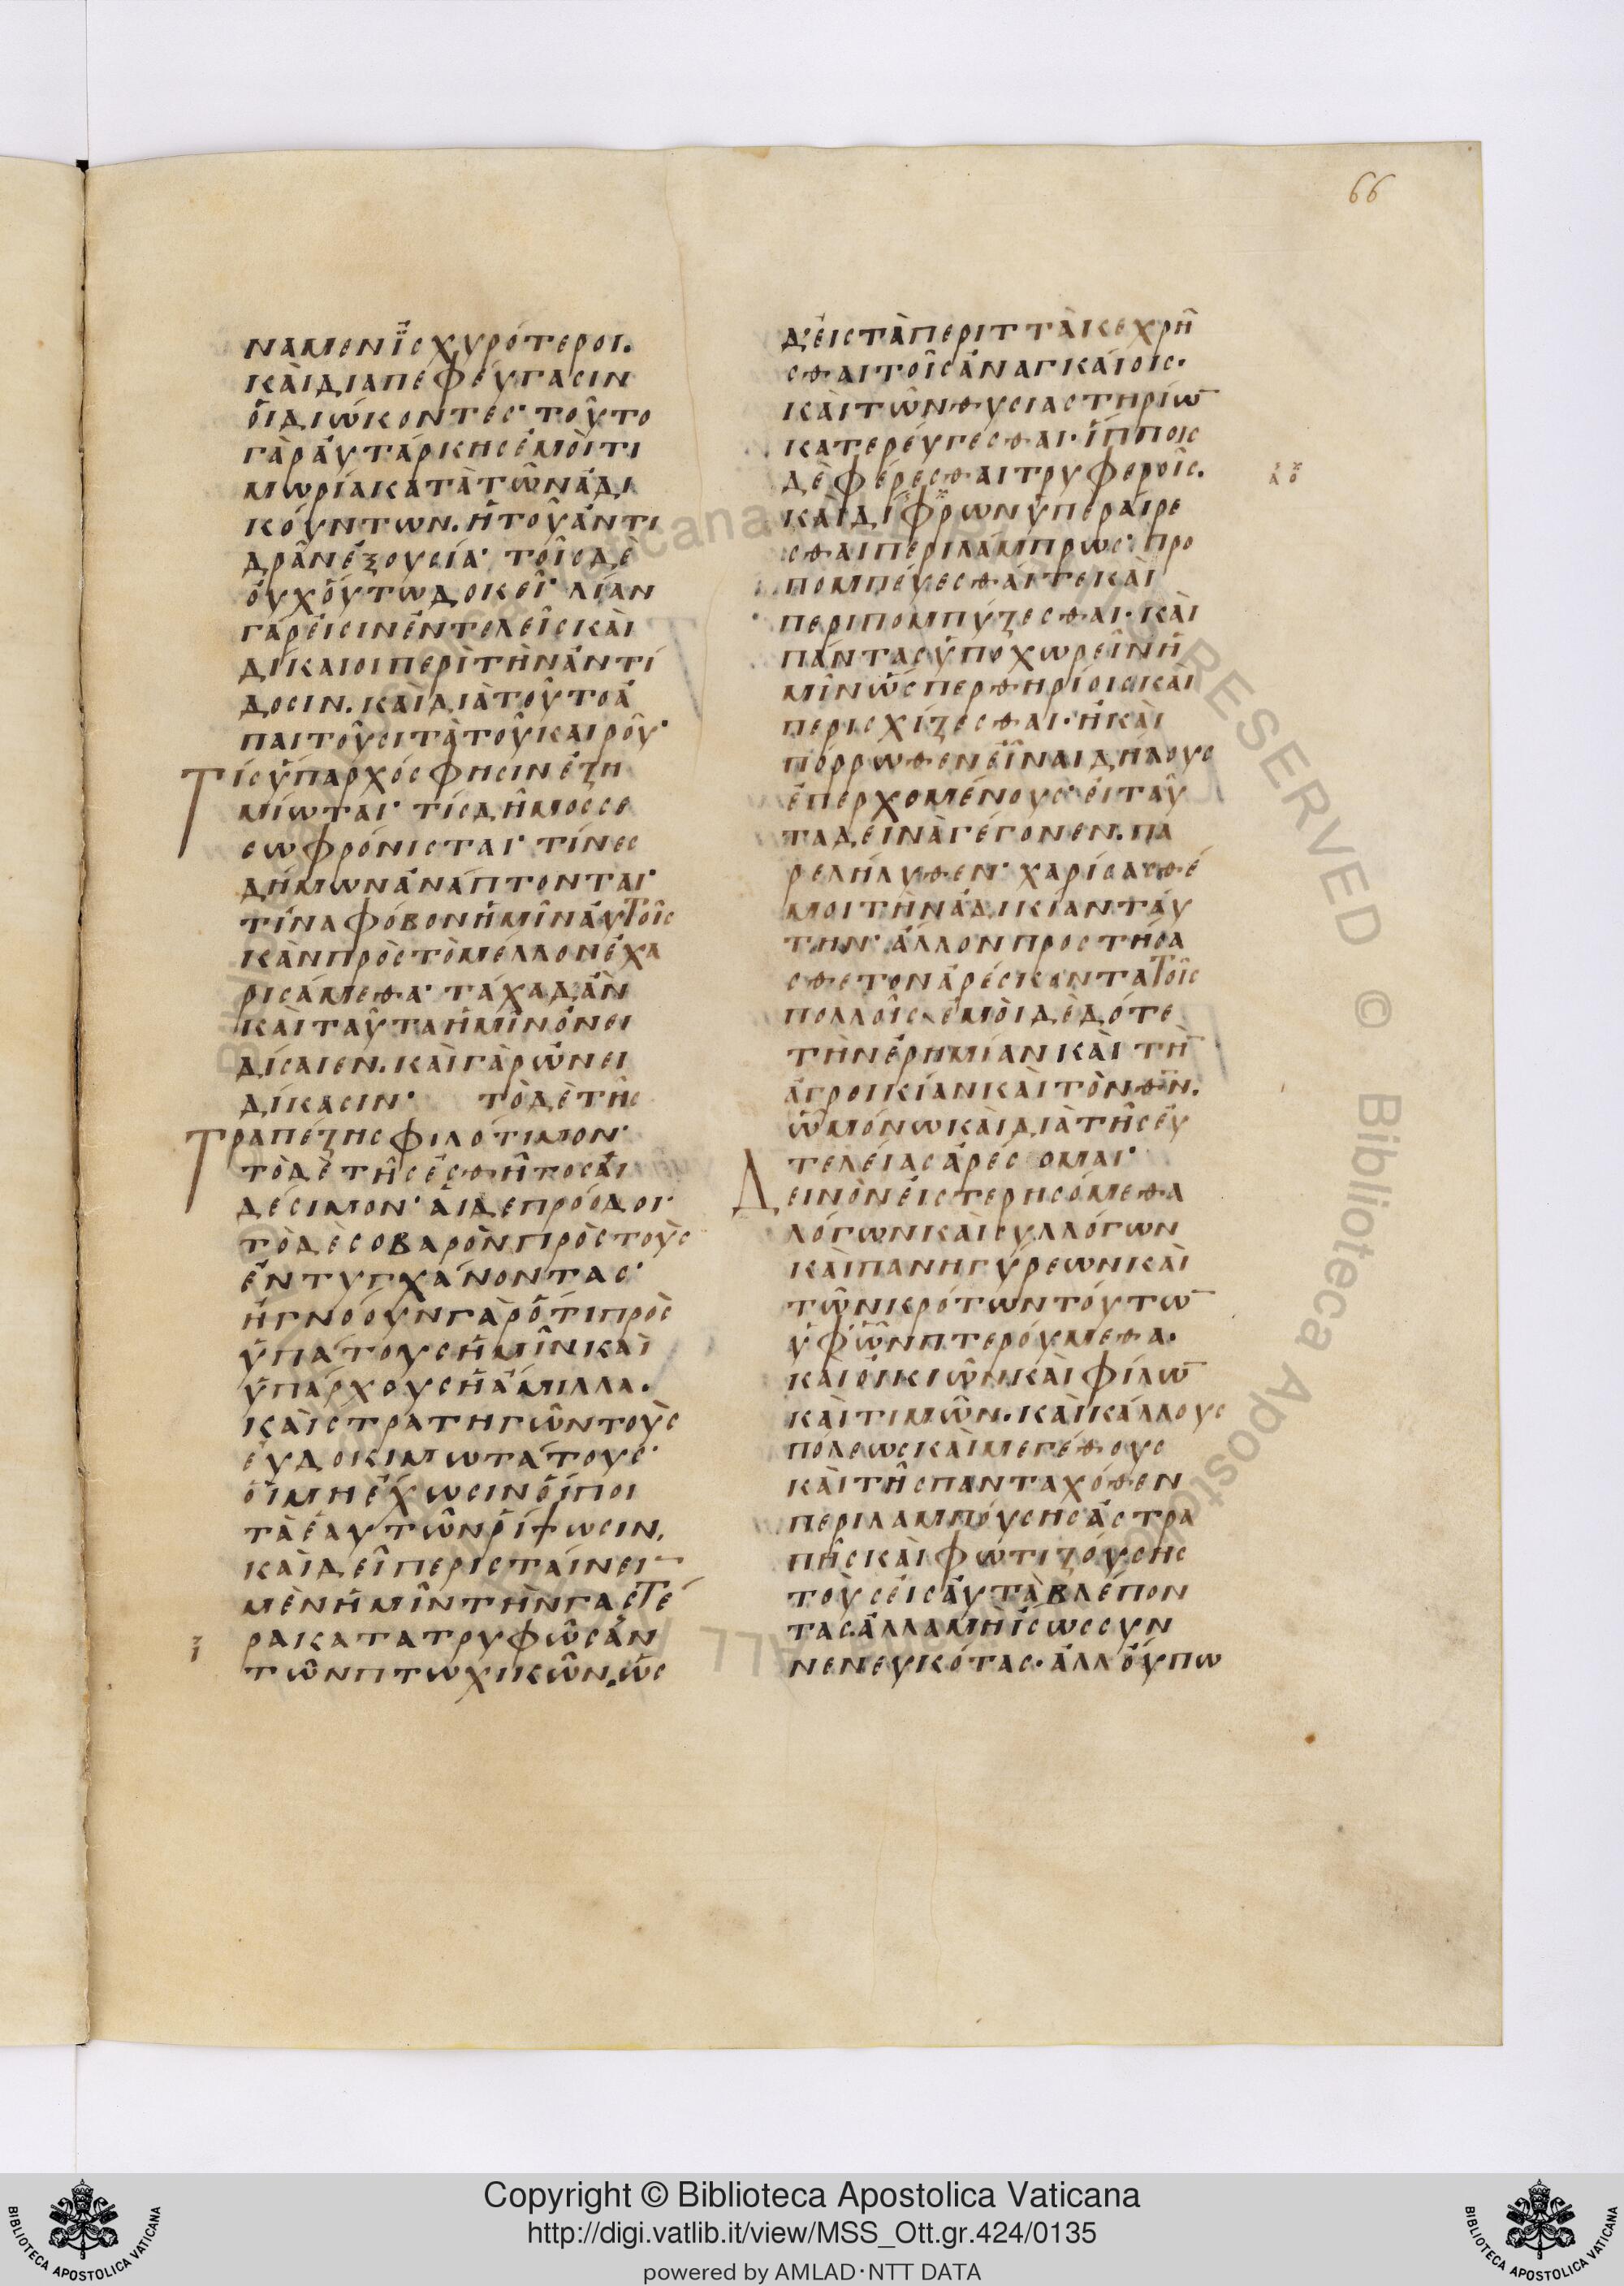 66
ναμεν ἰσχυρότεροι.
καὶ διαπεφεύγασιν
οἱ διώκοντες· τοῦτο
γὰρ αὐτάρκης ἐμοὶ τι
μωρία κατὰ τῶν ἀδι
κούντων. ἡ τοῦ ἀντι
δρᾶν ἐξουσία· τοῖς δὲ
οὐχ οὕτω δοκεῖ· λίαν
γάρ εἰσιν ἐντελεῖς καὶ
δίκαιοι περὶ τὴν ἀντί
δοσιν. καὶ διὰ τοῦτο ἀ
παιτοῦσι τὰ τοῦ καιροῦ·
Τίς ὕπαρχός φησιν ἐζη
μίωται· τίς δῆμος σε
σωφρόνισται· τίνες
δήμων ἀνάπτονται·
τίνα φόβον ἡμῖν αὐτοῖς
κἂν πρὸς τὸ μέλλον ἐχα
ρισάμεθα· τάχα δ' ἂν
καὶ ταῦτα ἡμῖν ὀνει
δίσαιεν. καὶ γὰρ ὠνει
δίκασιν· τὸ δὲ τῆς
Τραπέζης φιλότιμον·
τὸ δὲ τῆς ἐσθῆτος αἰ
δέσιμον· αἱ δε πρόοδοι·
τὸ δὲ σοβαρὸν πρὸς τοὺς
ἐντυγχάνοντας·
ἠγνόουν γὰρ ὅτι πρὸς
ὑπάτους ἡμῖν καὶ
ὑπάρχους ἡ ἅμιλλα.
καὶ στρατηγῶν τοὺς
εὐδοκιμωτάτους·
οἳ μὴ ἔχωσιν ὅποι
τὰ ἑαυτῶν ῥίψωσιν,
καὶ δεῖ περιστάινει¯
μὲν ἡμῖν τὴν γαστέ
ρα κατατρυφῶσαν
τῶν πτωχικῶν, ὡς
δ' εἰς τὰ περιττὰ κεχρῆ
σθαι τοῖς ἀναγκαίοις·
καὶ τῶν θυσιαστηρίω¯
κατερεύγεσθαι· ἵπποις
δὲ φέρεσθαι τρυφεροῖς.
καὶ δίφρων ὑπεραίρε
σθαι περιλάμπρως· προ
πομπεύεσθαί τε καὶ
περιπομπύζεσθαι· καὶ
πάντας ὑποχωρεῖν ἡ
μῖν ὥσπερ θηρίοις καὶ
περισχίζεσθαι· ἢ καὶ
πόρρωθεν εἶναι δήλους
ἐπερχομένους· εἰ ταῦ
τα δεινὰ γέγονεν. πα
ρελήλυθεν· χαρίσασθέ
μοι τὴν ἀδικίαν ταύ
την· ἄλλον προστήσα
σθε τον ἀρέσκοντα τοῖς
πολλοῖς· ἐμοὶ δὲ δότε
τὴν ἐρημίαν καὶ τὴ¯
ἀγροικίαν καὶ τὸν θ̅ν̅.
ᾧ μόνω καὶ διὰ τῆς εὐ
τελείας ἀρέσομαι·
Δεινὸν εἰ στερησόμεθα
λόγων καὶ συλλόγων
καὶ πανηγύρεων καὶ
τῶν κρότων τούτω¯
ὑφ' ὧν πτερούμεθα.
καὶ οἰκιῶν καὶ φίλω¯
καὶ τιμῶν. καὶ κάλλους
πόλεως καὶ μεγέθους
καὶ τῆς πανταχόθεν
περιλαμπούσης ἀστρα
πῆς καὶ φωτιζούσης
τοὺς εἰς αὐτὰ βλέπον
τας ἀλλα μὴ ἴσως συν
νενευκότας· ἀλλ' οὔπω
Copyright © Biblioteca Apostolica Vaticana
http://digi.vatlib.it/view/MSS_Ott.gr.424/0135
powered by AMLAD·NTT DATA
BIBLIOTECA APOSTOLICA VATICANA
BIBLIOTECA APOSTOLICA VATICANA